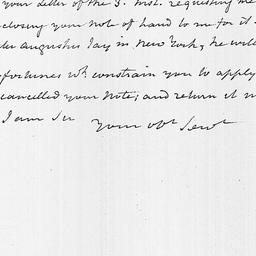 your letter of the 3. inst. requesting me
closing your note of hand to me for it
augustus Jay in New York, he will
fortunes wh. constrain you to apply
cancelled your note; and return it
I am Sir
your obt Servt